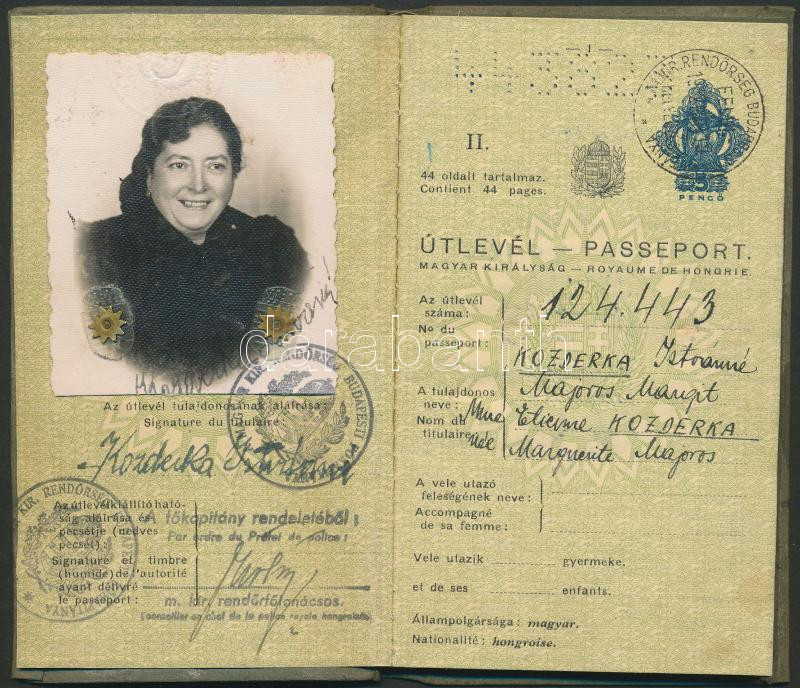 Az útlevél tulajdonosának aláírása:
Signature du titulaire:
Kozderka Istvánné
Az útlevélkiállító ható-
ság aláírása és
pecsétje (nedves
pecsét):
Signature et timbre
(humide) de l'autorité
ayant délivré
le passeport:
A főkapitány rendeletéből:
Par ordre du Préfet de police:
m. kir. rendőrfőtanácsos.
(conseiller en chef de la police royale hongroise)
KIR. RENDŐRSÉG BUDAPESTI
KIR. RENDŐRSÉG
M. KIR. RENDŐRSÉG BUDAPEST
II.
44 oldalt tartalmaz.
Contient 44 pages.
5
PENGŐ
ÚTLEVÉL — PASSEPORT.
MAGYAR KIRÁLYSÁG — ROYAUME DE HONGRIE.
Az útlevél
száma:
No du
passeport:
124.443
A tulajdonos
neve:
Nom du
titulaire:
KOZDERKA Istvánné
Majoros Margit
Mme Etienne KOZDERKA
née Marguerite Majoros
A vele utazó
feleségének neve:
Accompagné
de sa femme:
Vele utazik gyermeke.
et de ses enfants.
Állampolgársága: magyar.
Nationalité: hongroise.
darabanth